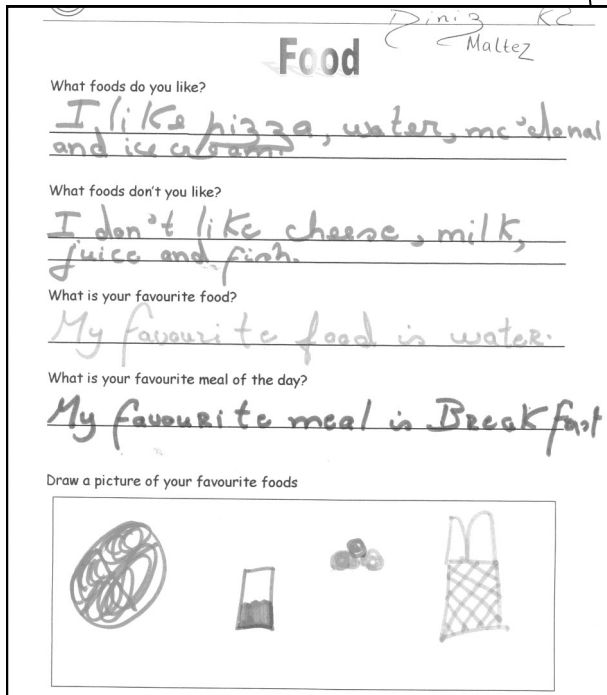 Diniz K2
Maltez
Food
What foods do you like?
I like pizza, water, mc'donal
and ice cream.
What foods don't you like?
I don't like cheese, milk,
juice and fish.
What is your favourite food?
My favourite food is water.
What is your favourite meal of the day?
My favourite meal is Breakfast
Draw a picture of your favourite foods